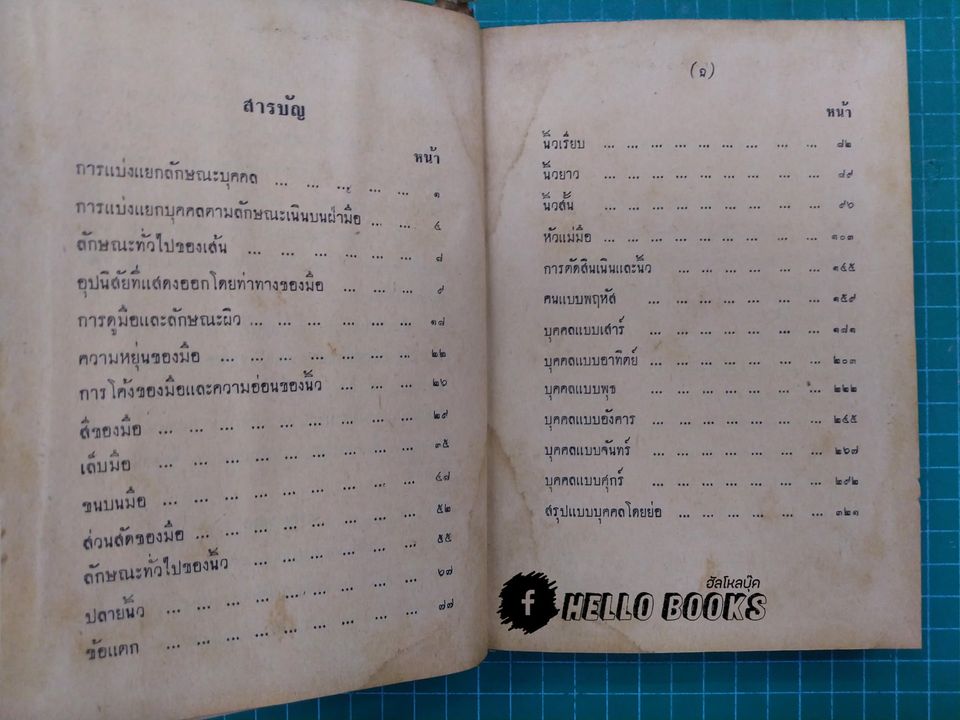 สารบัญ
หน้า
การแบ่งแยกลักษณะบุคคล ... ... ... ... ... ๑
การแบ่งแยกบุคคลตามลักษณะเนินบนฝ่ามือ ... ... ๔
ลักษณะทั่วไปของเส้น ... ... ... ... ... ... ๘
อุปนิสัยที่แสดงออกโดยท่าทางของมือ ... ... ... ๙
การดูมือและลักษณะผิว ... ... ... ... ... ... ๑๘
ความหยุ่นของมือ ... ... ... ... ... ... ... ๒๒
การโค้งของมือและความอ่อนของนิ้ว ... ... ... ๒๖
สีของมือ ... ... ... ... ... ... ... ... ... ๒๙
เล็บมือ ... ... ... ... ... ... ... ... ... ๓๕
ขนบนมือ ... ... ... ... ... ... ... ... ... ๔๗
ส่วนสัดของมือ ... ... ... ... ... ... ... ... ๕๒
ลักษณะทั่วไปของนิ้ว ... ... ... ... ... ... ๕๕
ปลายนิ้ว ... ... ... ... ... ... ... ... ... ๖๗
ข้อแตก ... ... ... ... ... ... ... ... ... ๗๗
(ฉ)
หน้า
นิ้วเรียบ ... ... ... ... ... ... ... ... ... ๘๒
นิ้วยาว ... ... ... ... ... ... ... ... ... ๘๙
นิ้วสั้น ... ... ... ... ... ... ... ... ... ๙๖
หัวแม่มือ ... ... ... ... ... ... ... ... ... ๑๐๓
การตัดสินเนินและนิ้ว ... ... ... ... ... ... ๑๔๕
คนแบบพฤหัส ... ... ... ... ... ... ... ๑๕๙
บุคคลแบบเสาร์ ... ... ... ... ... ... ... ๑๘๑
บุคคลแบบอาทิตย์ ... ... ... ... ... ... ... ๒๐๓
บุคคลแบบพุธ ... ... ... ... ... ... ... ๒๒๒
บุคคลแบบอังคาร ... ... ... ... ... ... ... ๒๔๕
บุคคลแบบจันทร์ ... ... ... ... ... ... ... ๒๖๗
บุคคลแบบศุกร์ ... ... ... ... ... ... ... ๒๙๒
สรุปแบบบุคคลโดยย่อ ... ... ... ... ... ... ๓๒๑
ฮัลโหลบุ๊ค
f HELLO BOOKS